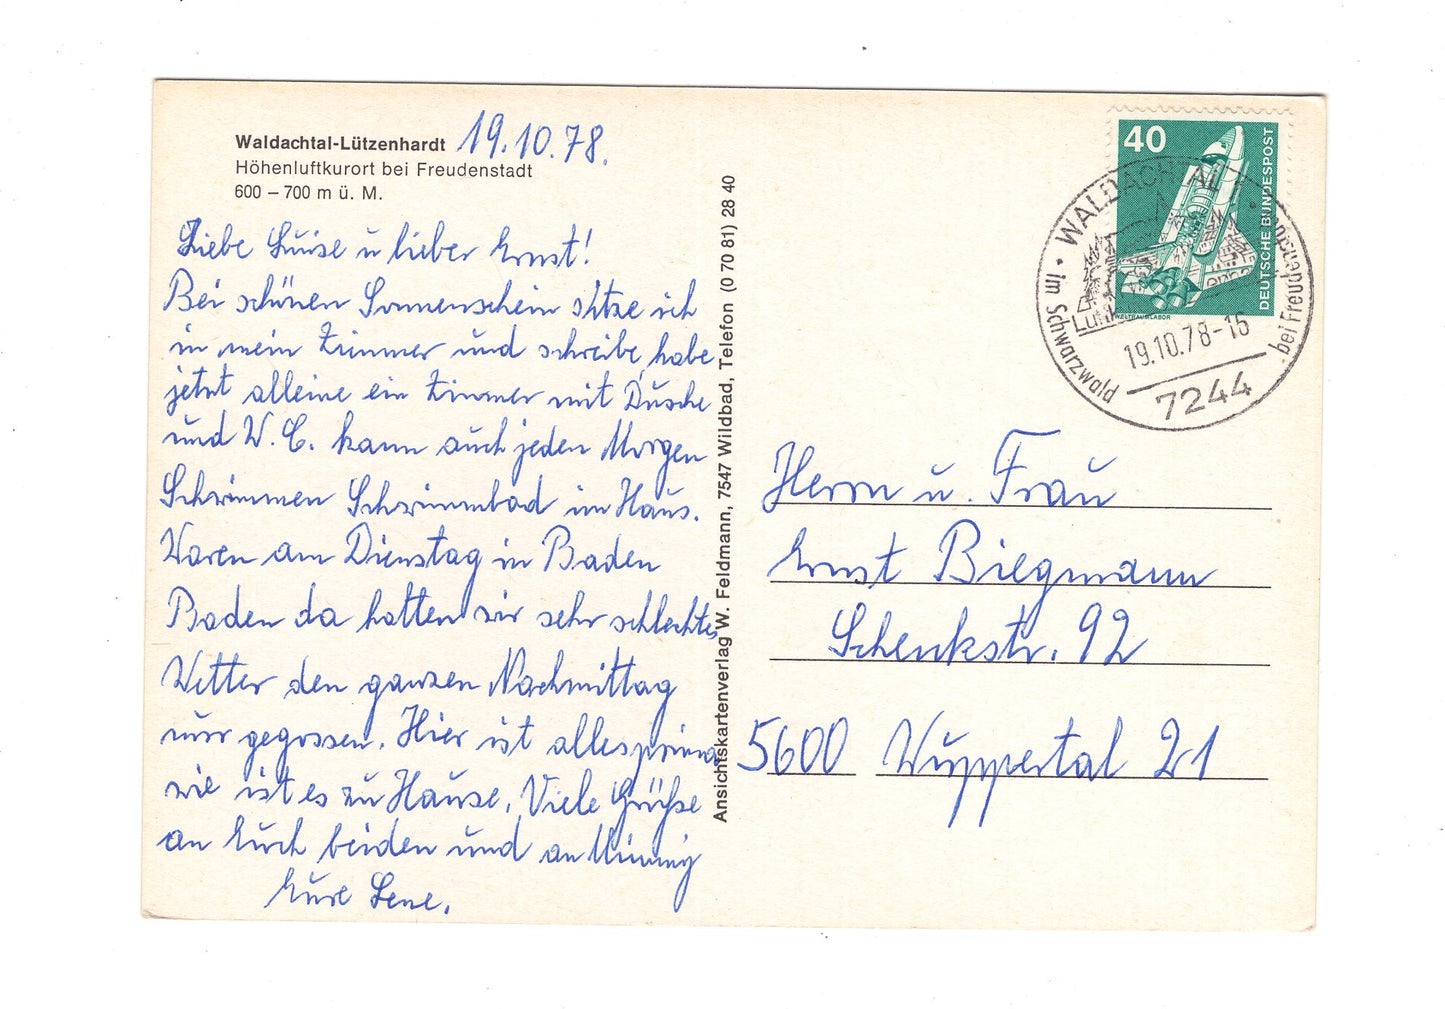 Waldachtal-Lützenhardt 19.10.78.
Höhenluftkurort bei Freudenstadt
600 – 700 m ü. M.
Liebe Luise u lieber Ernst!
Bei schönen Sonnenschein sitze ich
in mein Zimmer und schreibe, habe
jetzt alleine ein Zimmer mit Dusche
und W.C. kann auch jeden Morgen
Schwimmen Schwimmbad im Haus.
Waren am Dienstag in Baden
Baden da hatten wir sehr schlechtes
Wetter den ganzen Nachmittag
nur gegossen. Hier ist alles prima
wie ist es zu Hause. Viele Grüße
an Euch beiden und an
Eure Lene.
Ansichtskartenverlag W. Feldmann, 7547 Wildbad, Telefon (0 70 81) 28 40
40
DEUTSCHE BUNDESPOST
WELTRAUMLABOR
WALDACHTAL 1
im Schwarzwald
bei Freudenstadt
19.10.78-16
7244
Herrn u. Frau
Ernst Biegmann
Schenkstr. 92
5600 Wuppertal 21